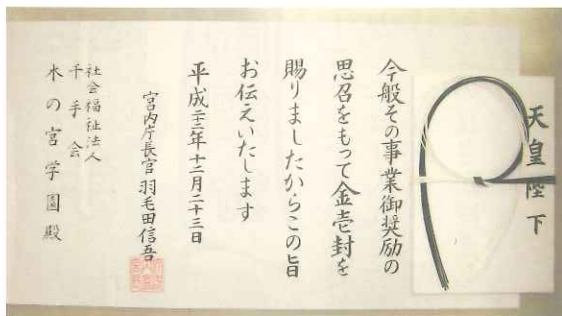 天皇陛下
今般その事業御奨励の
思召をもって金壱封を
賜りましたからこの旨
お伝えいたします
平成二十三年十二月二十三日
宮内庁長官 羽毛田信吾
社会福祉法人
千手会
水の宮学園殿